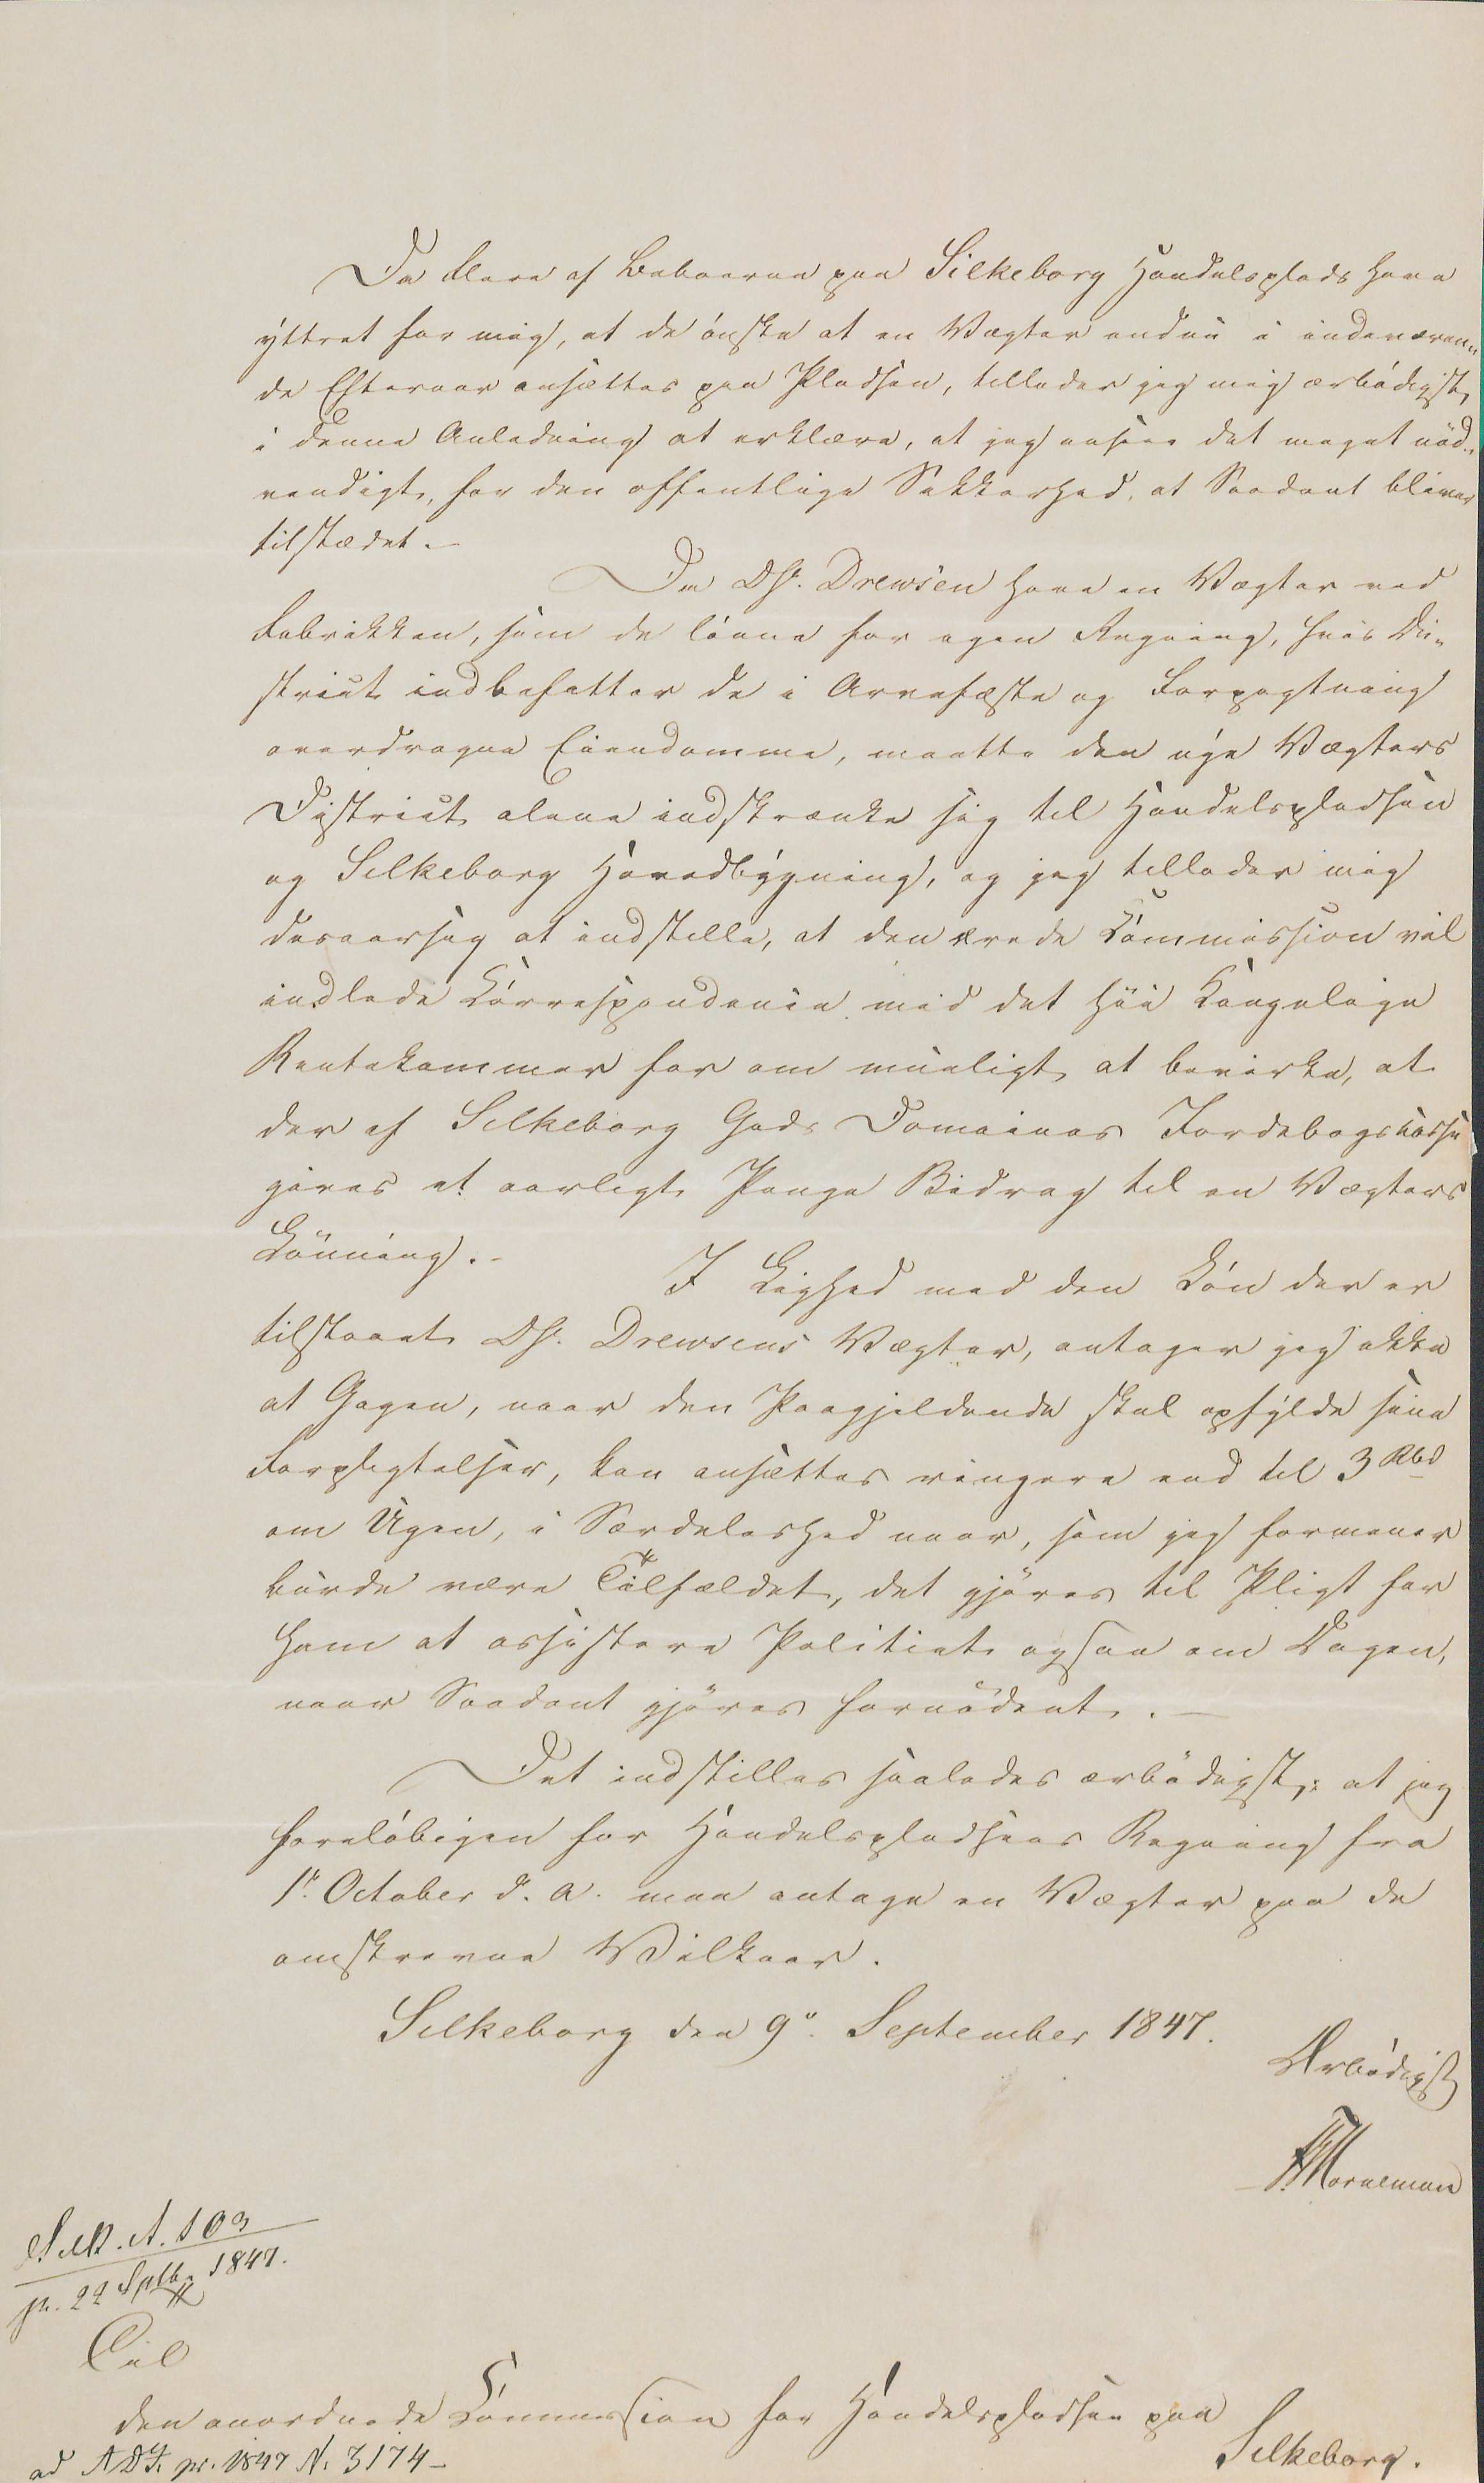 Da flere af Beboerne paa Silkeborg Handelsplads have
yttret for mig, at de ønske at en Vægter endnu i indeværen„
de Efteraar ansættes paa Pladsen, tillader jeg mig ærbødigst,
i denne Anledning at erklære, at jeg anseer det meget nød„
vendigt, for den offentlige Sikkerhed, at Saadant bliver
tilstædet.
Da DHr. Drewsen have en Vægter ved
Fabrikken, som de lønne for egen Regning, hvis Di„
strict indbefatter de i Arvefæste og Forpagtning
overdragne Eiendomme, maatte den nye Vægters
District alene indskrænke sig til Handelspladsen
og Silkeborg Hovedbygning, og jeg tillader mig
desaarsag at indstille, at den ærede Commission vil
indlede Correspondence med det høie Kongelige
Rentekammer for om mueligt at bevirke, at
der af Silkeborg Gods Domaines Jordebogskasse
gives et aarligt Penge Bidrag til en Vægters
Lønning.-
I Lighed med den Løn der er
tilstaaet DHr. Drewsens Vægter, antager jeg ikke
at Gagen, naar den Paagjeldende skal opfylde sine
Forpligtelser, kan ansættes ringere end til 3 Rbd
om Ugen, i Særdeleshed naar, som jeg formener
burde være Tilfældet, det gjøres til Pligt for
ham at assistere Politiet ogsaa om Dagen,
naar Saadant gjøres fornødent. -
Det indstilles saaledes ærbødigst, at jeg
foreløbigen for Handelspladsens Regning fra
1t. October d. a. maa antage en Vægter paa de
omskrevne Vilkaar.
Silkeborg den 9de. September 1847.
Ærbødigst
Silk. A. 103
pr. 22 Sptbr. 1847.
Til
den anordnede Commission for Handelspladsen paa
Silkeborg.
ad ADJ. pr. 1847 N. 3174-